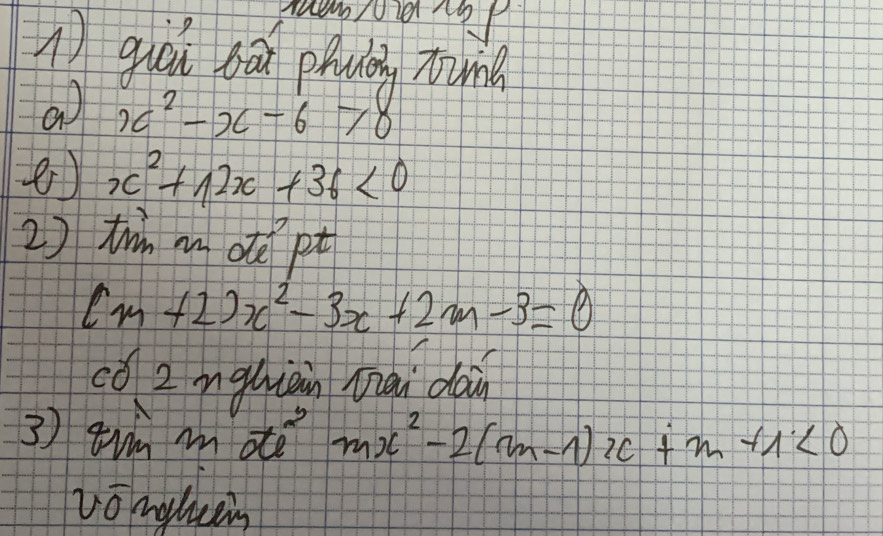 1) giải bất phương trình
a) x² - x - 6 > 0
b) x² + 12x + 36 < 0
2) tìm m để pt
(m + 2)x² - 3x + 2m - 3 = 0
có 2 nghiệm trái dấu
3) tìm m để mx² - 2(m - 1)x + m + 1 < 0
vô nghiệm